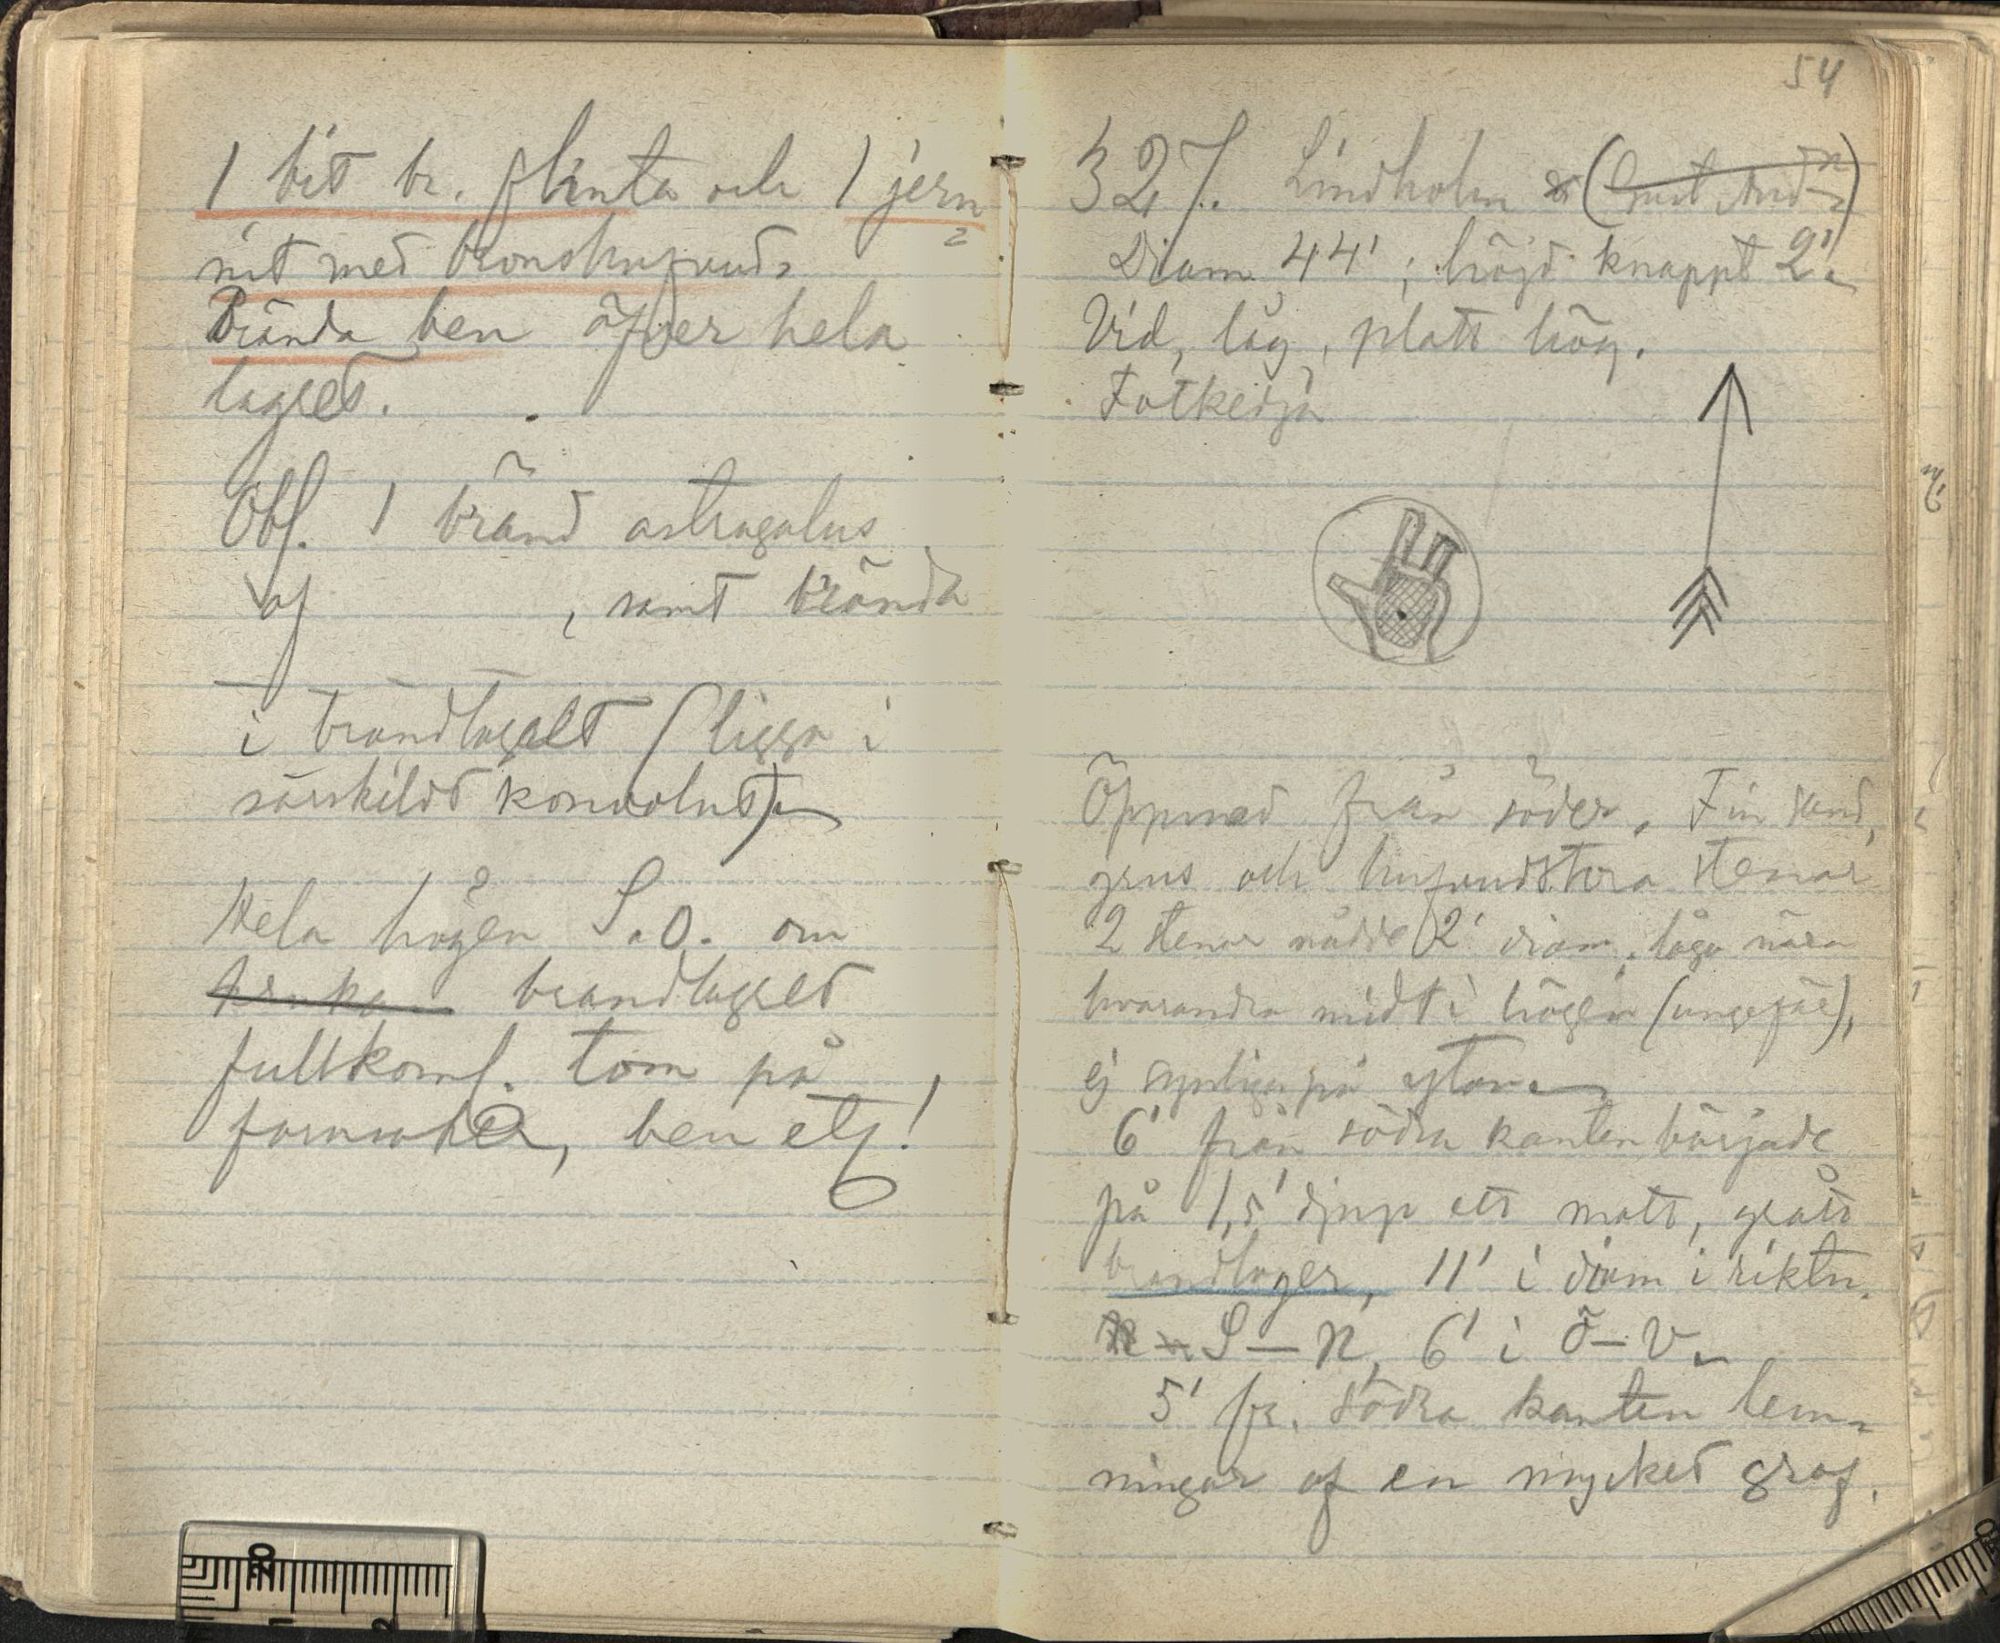 1 bit br. flinta och 1 jern
nit med bronshufvud.
Brända ben öfver hela
lagret.
Obs. 1 bränd astragalus
af , samt brända
i brandlagret (ligga i
särskildt konvolut).
Hela högen S.O. om
krukan brandlagret
fullkoml. tom på
fornsaker, ben etc!
54
327. Lindholm
Diam 44'; höjd knappt 2'.
Vid, låg, platt hög.
Fotkedja
Öppnad från söder. Fin sand,
grus och hufvudstora stenar
2 stenar nådde 2' diam, lågo nära
hvarandra midt i högen (ungefär),
ej synliga på ytan.
6' från södra kanten började
på 1,5' djup ett matt, grått
brandlager, 11' i diam i riktn.
S—N, 6' i Ö—V.
5' fr. södra kanten lem-
ningar af en mycket grof